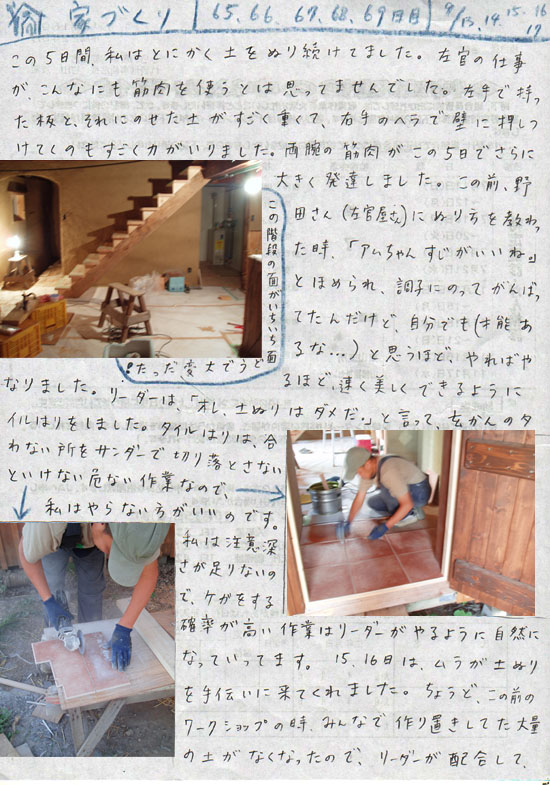 家づくり 65.66. 67.68.69日目 9/13.14.15.16 17
この5日間、私はとにかく土をぬり続けてました。左官の仕事
がこんなにも筋肉を使うとは思ってませんでした。左手で持っ
た板と、それにのせた土がすごく重くて、右手のヘラで壁に押しつ
けてくのもすごく力がいりました。両腕の筋肉がこの5日でさらに
大きく発達しました。この前、野
田さん(左官屋さん)にぬり方を教わっ
た時、「アムちゃんすじがいいね」
とほめられ、調子にのってがんばっ
てたんだけど、自分でも(才能あ
るな…)と思うほど、やればや
るほど、速く美しくできるように
この階段の面がいちいち面
倒で大変だった!
なりました。リーダーは、「オレ、土ぬりはダメだ。」と言って、玄かんのタ
イルはりをしました。タイルはりは、合
わない所をサンダーで切り落とさない
といけない危ない作業なので、
私はやらない方がいいのです。
私は注意深
さが足りないの
で、ケガをする
確率が高い作業はリーダーがやるように自然に
なっていってます。15、16日は、ムラが土ぬり
を手伝いに来てくれました。ちょうど、この前の
ワークショップの時、みんなで作り置きしてた大量
の土がなくなったので、リーダーが配合して、